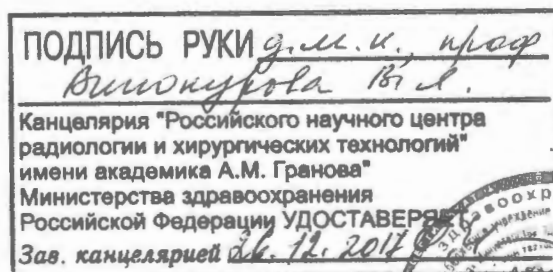 ПОДПИСЬ РУКИ д.м.н., проф
Винокурова В.Л.
Канцелярия "Российского научного центра
радиологии и хирургических технологий"
имени академика А.М. Гранова"
Министерства здравоохранения
Российской Федерации УДОСТАВЕРЯЕТ
Зав. канцелярией 26.12.2017